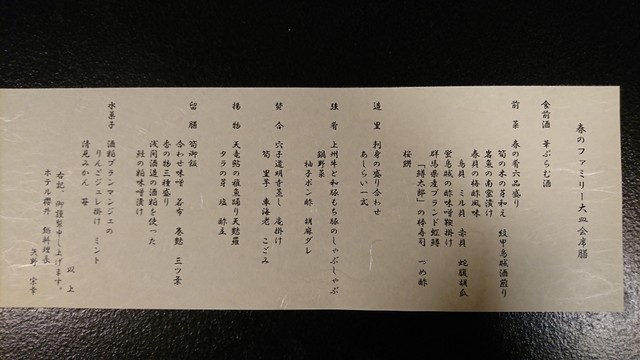 春のファミリー大皿会席膳
食前酒 華ぶらむ酒
前菜 春の肴六品盛り
筍の木の芽和え 紋甲烏賊酒煎り
若魚の南蛮漬け
春貝の梅酢風味
鳥貝 ミル貝 赤貝 蛇腹胡瓜
蛍烏賊の酢味噌鞍掛け
群馬県産ブランド虹鱒
「鱒太郎」の棒寿司 つめ酢
桜餅
造里 刺身の盛り合わせ
あしらい一式
強肴 上州牛と和豚もち豚のしゃぶしゃぶ
鍋野菜
柚子ポン酢 胡麻ダレ
焚合 穴子道明寺蒸し 庵掛け
筍 里芋 車海老 こごみ
揚物 天竜鮎の稚魚踊り天麩羅
タラの芽 塩 酢立
留膳 筍御飯
合わせ味噌 若布 巻麩 三ツ葉
香の物三種盛り
浅間酒造の酒粕を使った
鮭の粕味噌漬け
水菓子 酒粕ブランマンジェの
りんごジュレ掛け ミント
清見みかん 苺
以上
右記、御謹製申し上げます。
ホテル櫻井 総料理長
矢野 宗幸